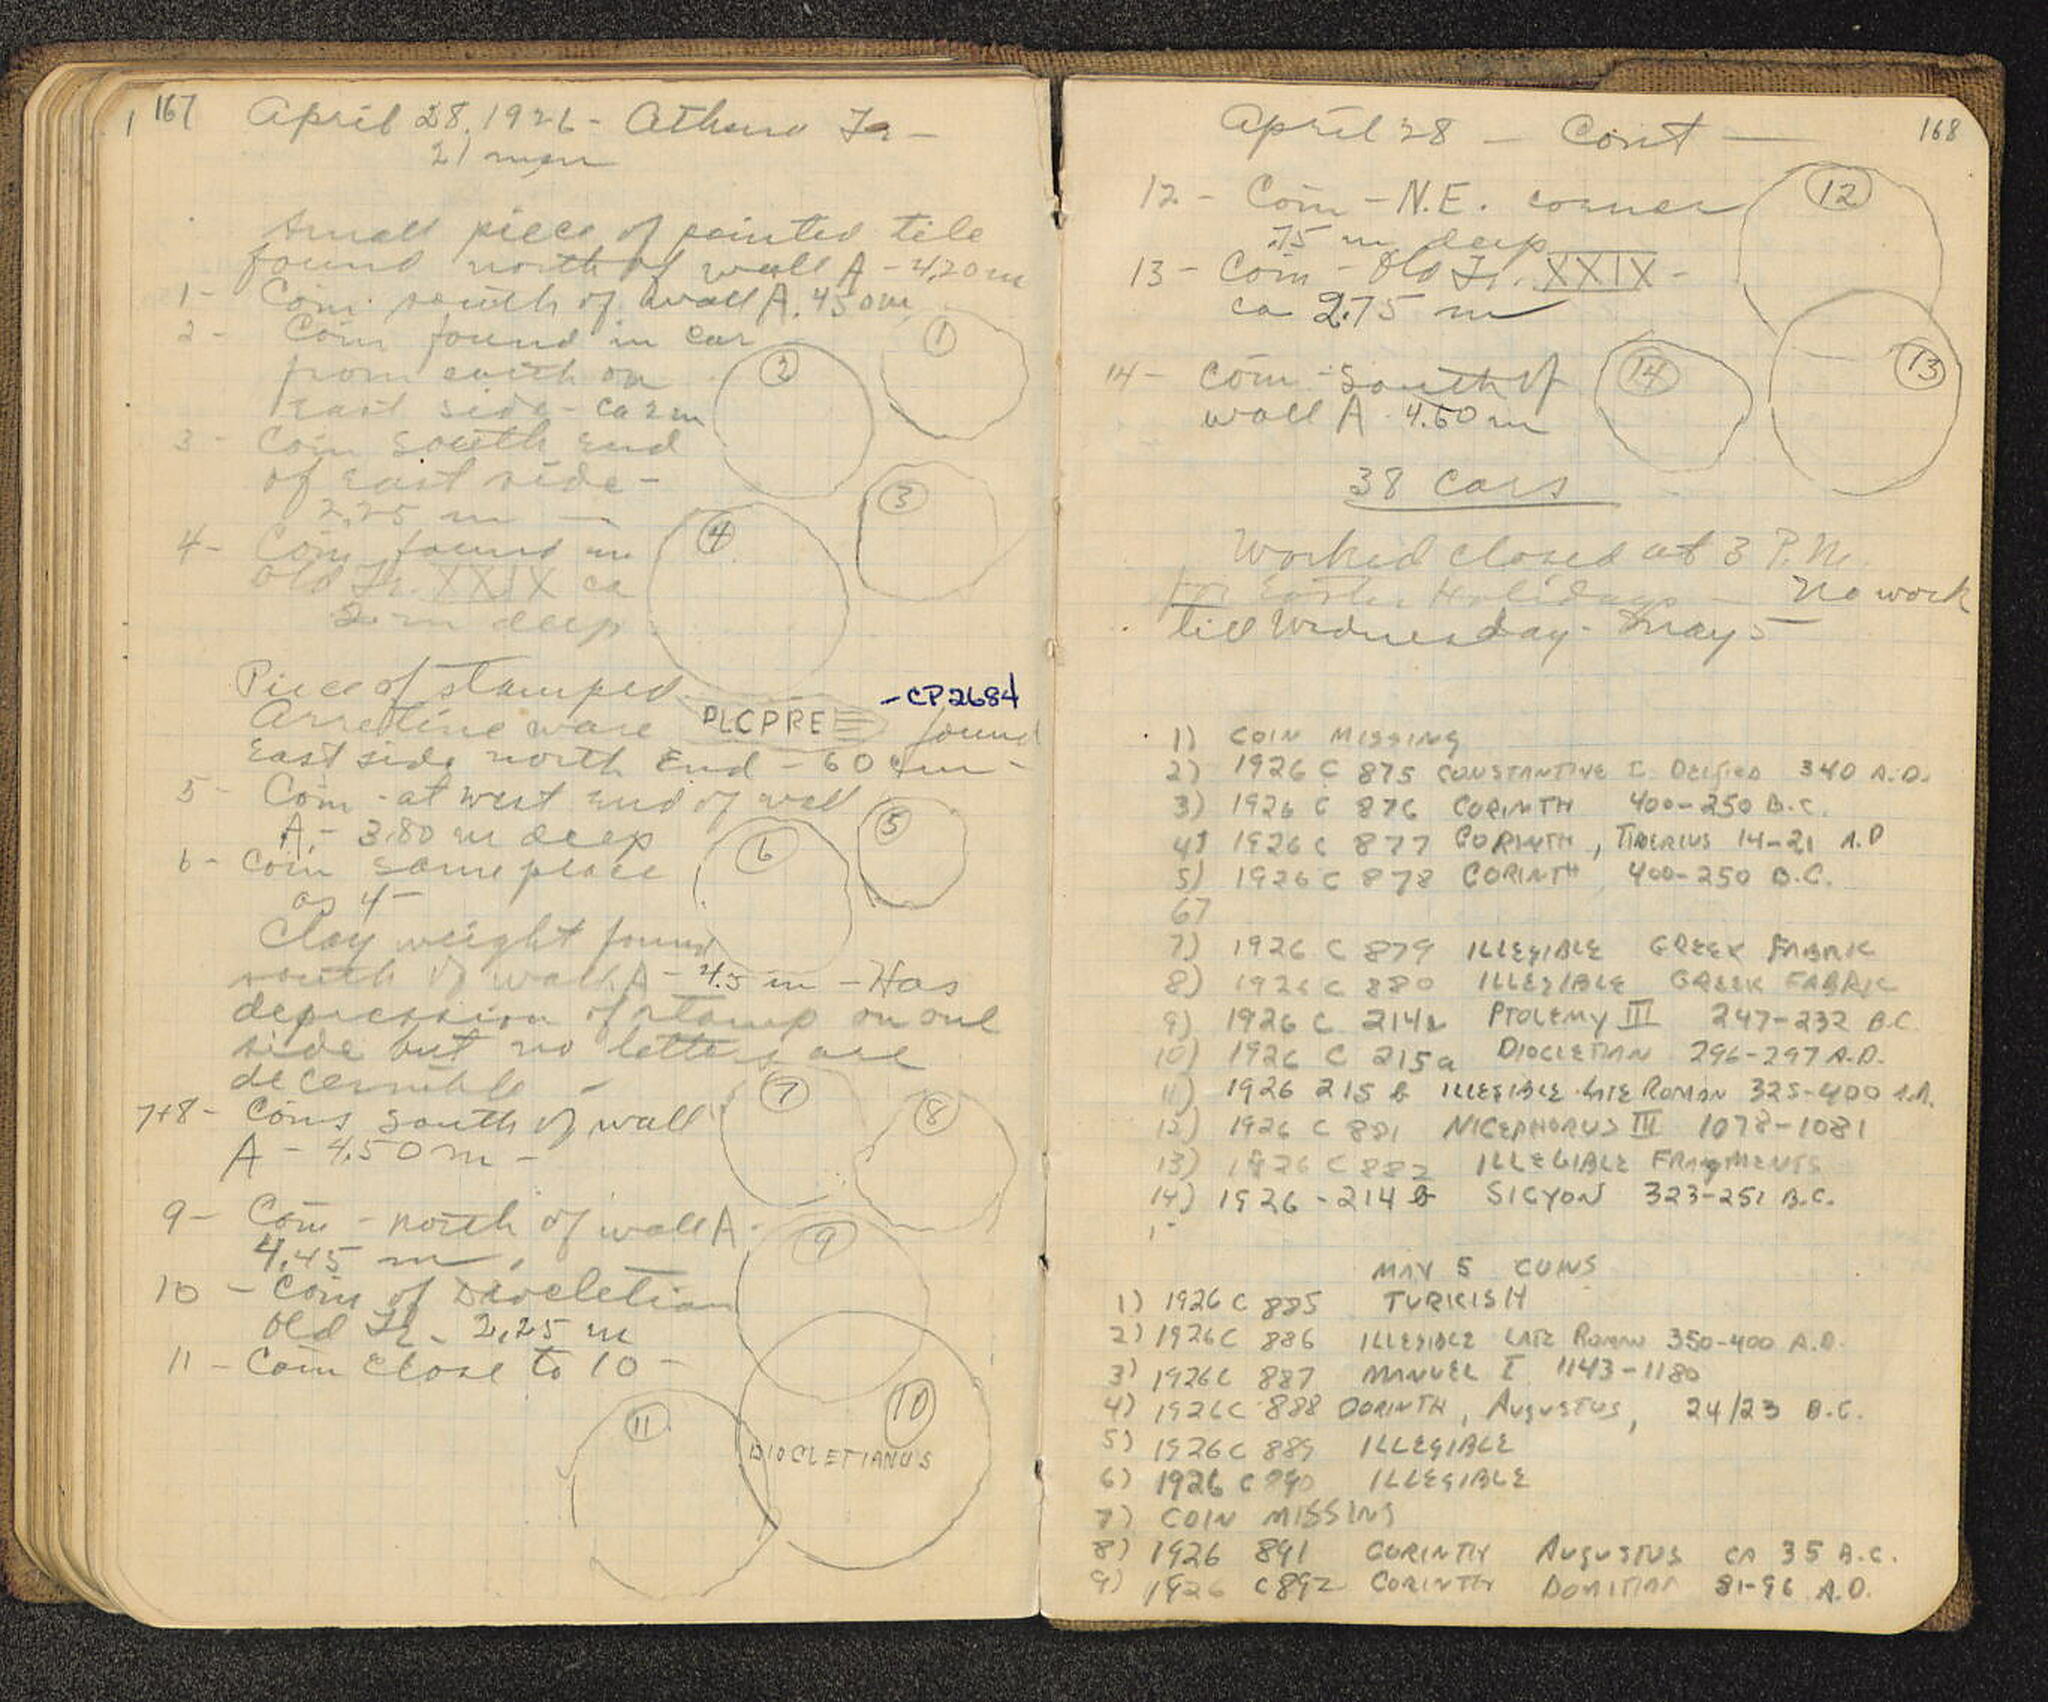 167 April 28, 1926 - Athena Tr -
21 men
Small piece of painted tile
found north of wall A - 4.20 m
1 - Coin south of wall A. 4.50 m
2 - Coin found in car
from earth on
East side - ca 2 m
3 - Coin south End
of East side -
2.25 m -
4 - Coin found in
Old Tr. XXIX ca
2 m deep
Piece of stamped - CP2684
Arretine ware PLCPRE found
East side north End - 60 cm -
5 - Coin - at west end of wall
A - 3.80 m deep
6 - Coin same place
as 4 -
Clay weight found
south of wall A - 4.5 m - Has
depression of stamp on one
side but no letters are
decernible -
7+8 - Coins south of wall
A - 4.50 m -
9 - Coin - north of wall A -
4.45 m.
10 - Coin of Diocletian
Old Tr - 2.25 m
11 - Coin close to 10 -
1
2
3
4
5
6
7
8
9
10
11
DIOCLETIANUS
April 28 - Cont - 168
12 - Coin - N.E. corner
.75 m deep
13 - Coin - Old Tr. XXIX -
ca 2.75 m
14 - Coin - South of
wall A - 4.60 m
12
13
14
38 cars
Worked closed at 3 P.M.
for Easter Holidays - No work
till Wednesday - May 5 -
1) COIN MISSING
2) 1926 C 875 CONSTANTINE I DEIFIED 340 A.D.
3) 1926 C 876 CORINTH 400-250 B.C.
4) 1926 C 877 CORINTH, TIBERIUS 14-21 A.D
5) 1926 C 878 CORINTH 400-250 B.C.
6?
7) 1926 C 879 ILLEGIBLE GREEK FABRIC
8) 1926 C 880 ILLEGIBLE GREEK FABRIC
9) 1926 C 214a PTOLEMY III 247-232 B.C.
10) 1926 C 215a DIOCLETIAN 296-297 A.D.
11) 1926 215 b ILLEGIBLE LATE ROMAN 325-400 A.D.
12) 1926 C 881 NICEPHORUS III 1078-1081
13) 1926 C 882 ILLEGIBLE FRAGMENTS
14) 1926 - 214 b SICYON 323-251 B.C.
MAY 5 COINS
1) 1926 C 885 TURKISH
2) 1926 C 886 ILLEGIBLE LATE ROMAN 350-400 A.D.
3) 1926 C 887 MANUEL I 1143-1180
4) 1926 C 888 CORINTH, AUGUSTUS, 24/23 B.C.
5) 1926 C 889 ILLEGIBLE
6) 1926 C 890 ILLEGIBLE
7) COIN MISSING
8) 1926 891 CORINTH AUGUSTUS CA 35 B.C.
9) 1926 C 892 CORINTH DOMITIAN 81-96 A.D.